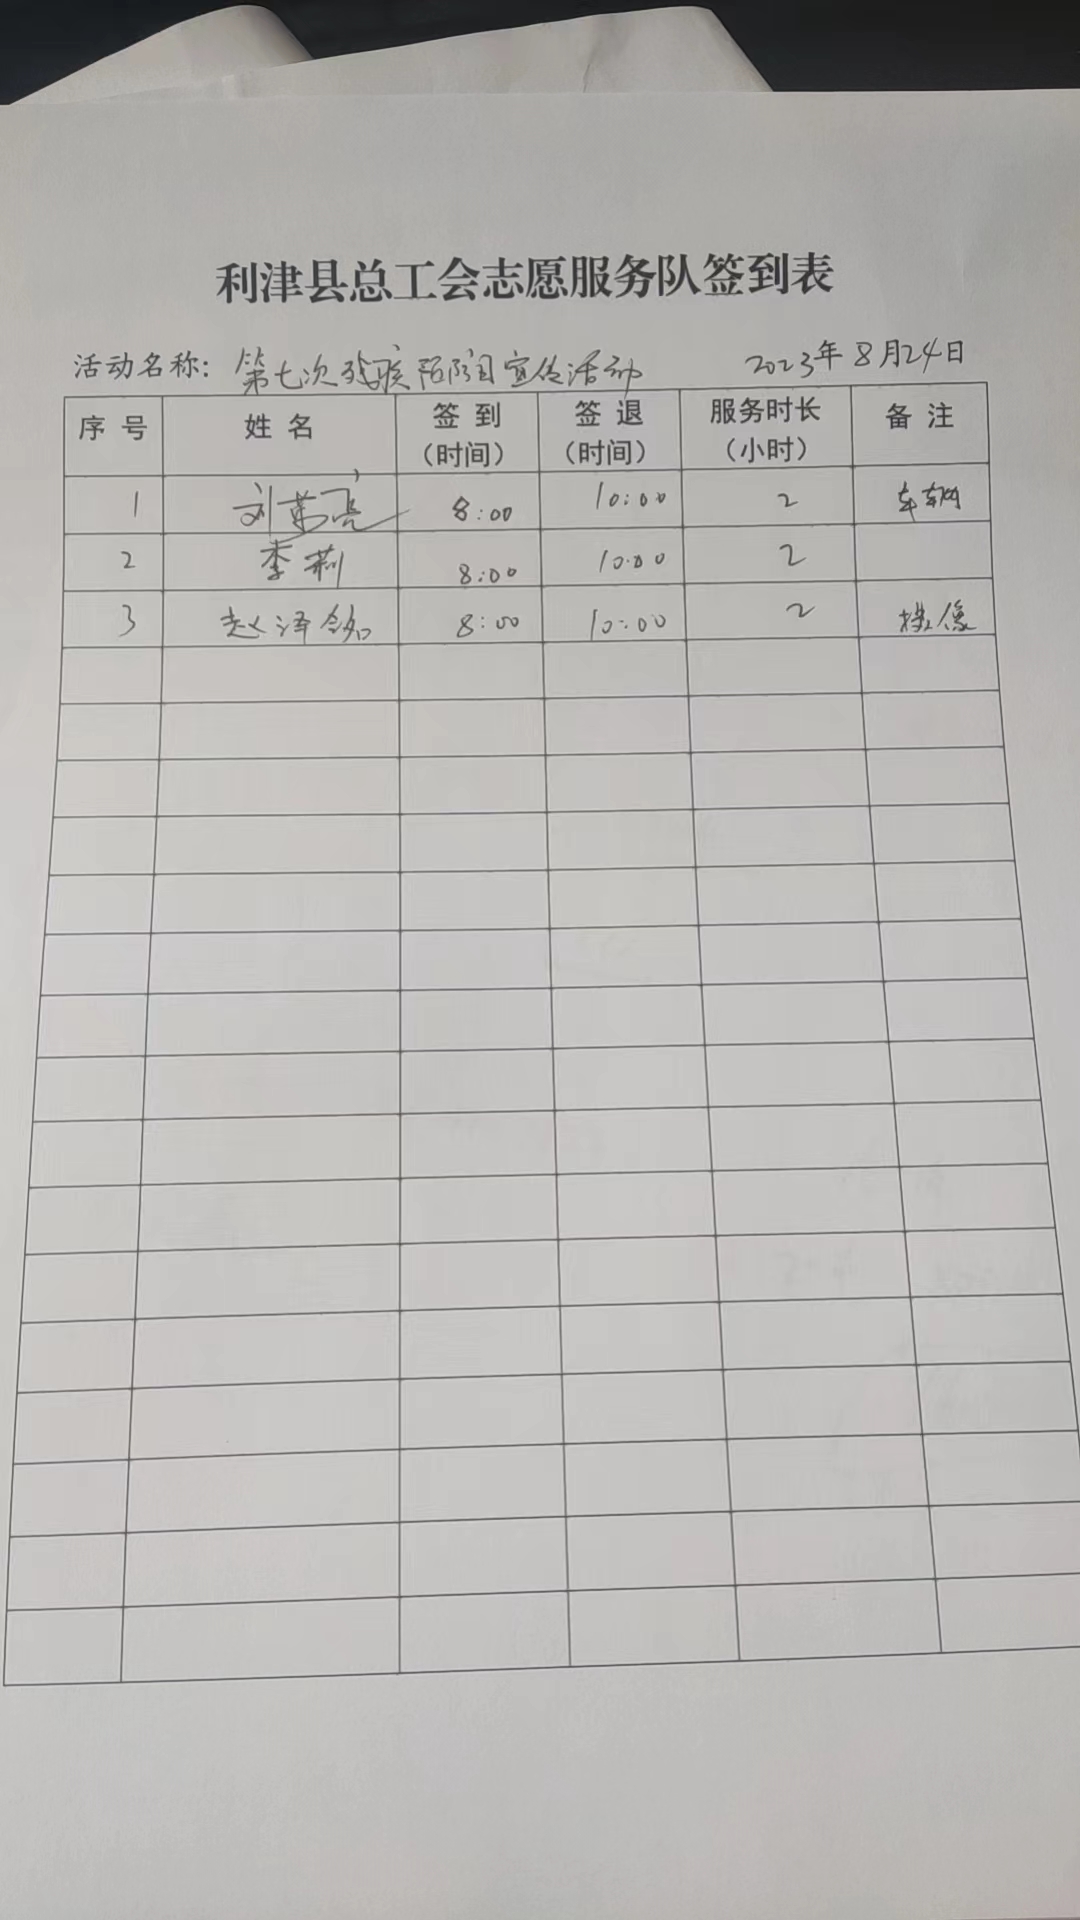 利津县总工会志愿服务队签到表
活动名称：第七次残疾预防日宣传活动 2023年8月24日
序号 姓名 签到（时间） 签退（时间） 服务时长（小时） 备注
1 刘 亮 8:00 10:00 2 车辆
2 李莉 8:00 10:00 2
3 赵泽铭 8:00 10:00 2 摄像